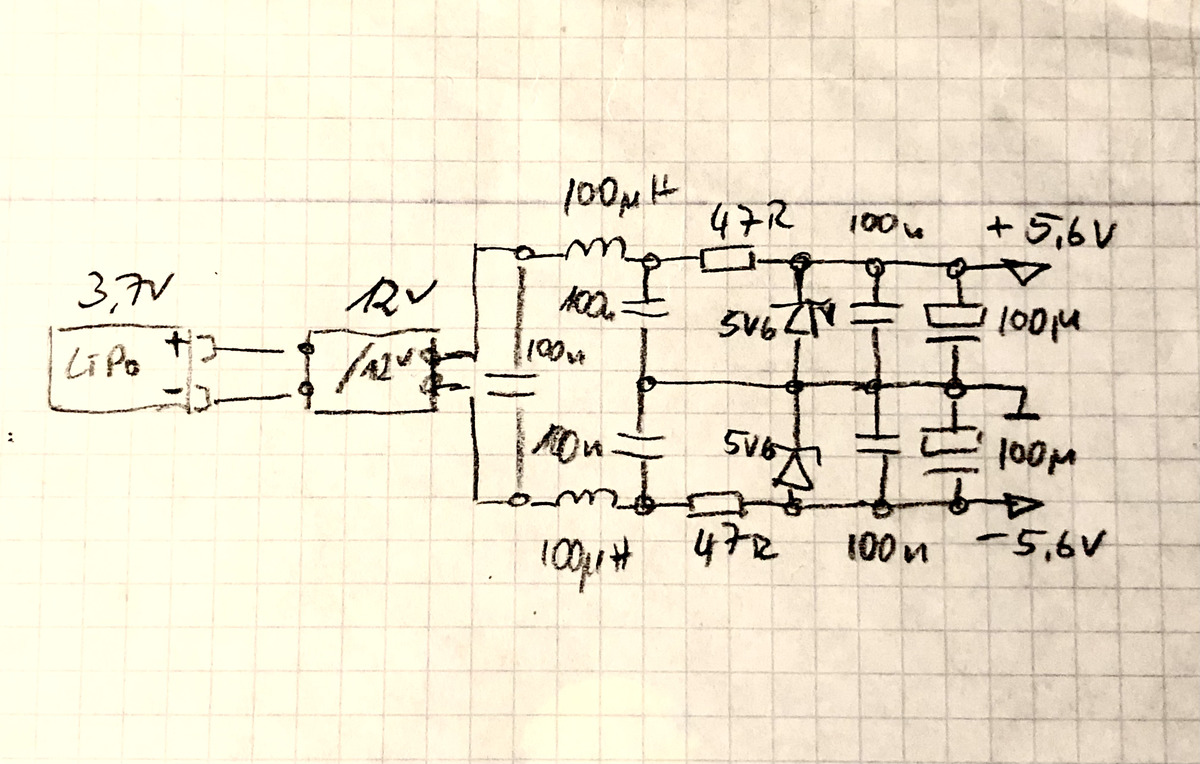 100µH
47R
100n
+5,6V
3,7V
12V
LiPo
+
-
/12V
100n
5V6
100µ
100n
100n
5V6
100µ
100µH
47R
100n
-5,6V